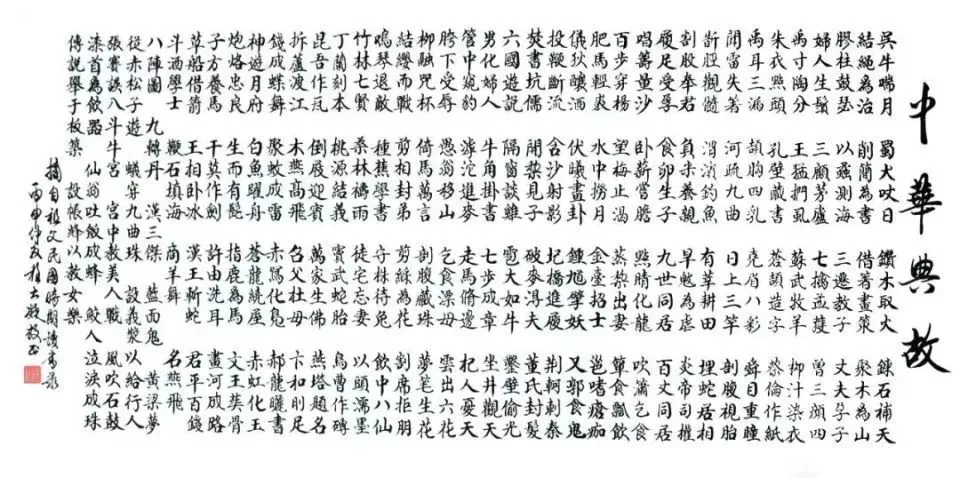 中華典故
吳牛喘月 蜀犬吠日 鑽木取火 鍊石補天
結繩為治 削簡為書 借箸畫策 聚木為山
膠柱鼓瑟 以蠡測海 三遷教子 丈夫孕子
婦人生鬚 三顧茅廬 七擒孟獲 曾三顏四
禹寸陶分 王猛捫虱 蘇武牧羊 柳汁染衣
朱衣點頭 孔壁藏書 蒼頡造字 蔡倫作紙
禹耳三漏 胡胸四乳 堯眉八彩 舜目重瞳
聞雷失著 河疏九曲 日上三竿 剖腹視胎
斮脛觀髓 渭濱釣魚 有莘耕田 埋蛇居相
割股奉君 負米養親 早魃為虐 炎帝司權
履足受 食卵生子 九世同居 百丈同居
唱籌量沙 臥薪嘗膽 點睛化龍 吹簫乞食
百步穿楊 望梅止渴 蒸梨出妻 簞食瓢飲
肥馬輕裘 水中撈月 金臺招士 邕嗜瘡痂
儀狄釀酒 伏羲畫卦 鍾馗擊妖 又郭食鬼
投鞭斷流 含沙射影 圯橋進履 荊軻刺秦
焚書坑儒 開棨見子 破麥得夫 董氏封髮
六國遊說 隔窗談雞 雹大如牛 鑿壁偷光
男化婦人 牛角掛書 七步成章 坐井觀天
管中窺豹 滹沱進粥 走馬修邊 杞人憂天
胯下受辱 愚翁移山 乞食漂母 雲出六花
柳融咒杯 倚馬萬言 剖腹藏珠 夢筆生花
結纓而戰 剪桐封弟 剪綵為花 割席拒朋
鳴琴退敵 種蕉學書 守株待兔 飲中八仙
竹林七賢 桑林禱雨 徒宅忘妻 以頭濡墨
丁蘭刻木 桃源結義 寶武蛇胎 烏曹作磚
昆吾作瓦 倒屐迎賓 萬家生佛 燕塔題名
拆蘆波江 木燕高飛 召父杜母 卞和刖足
錢成蝶舞 聚蚊成雷 赤舄化鳧 郝龍曬書
神遊月府 白魚躍舟 蒼龍繞屋 赤虹化玉
炮烙忠良 生而有髭 指鹿為馬 文王葬骨
子方養馬 干莫作劍 許由洗耳 畫河成路
草船借箭 王相卧冰 漢王斬蛇 君平百錢
斗酒學士 鞭石填海 商羊舞 名燕飛
八陣圖 九轉丹 漢三傑 藍面鬼 黃梁夢
從赤松子遊 蟻穿九曲珠 設義漿以給行人
張騫誤入斗牛宮 宮中教美人戰 風吹石鼓
漆首為飲器 仙翁吐飯成蜂 鮫人泣淚成珠
傅說舉于板築 設帳絳以教女樂
摘自祖父民國時期讀書錄
丙申仲夏